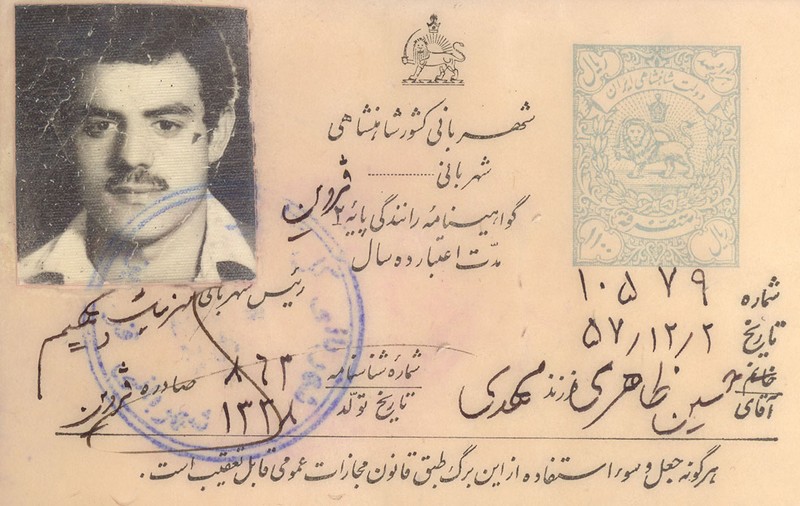 شهربانی کشور شاهنشاهی
شهربانی قزوین
گواهینامه رانندگی پایه ۲
مدت اعتبار ده سال
دولت شاهنشاهی ایران
متفرقه
۱۰۰ ریال
رئیس شهربانی
شماره ۱۰۵۷۹
تاریخ ۵۷/۱۲/۲
خانم
آقای حسین طاهری فرزند مهدی
شماره شناسنامه ۸۶۳ صادره قزوین
تاریخ تولد ۱۳۳۸
هرگونه جعل و سوء استفاده از این برگ طبق قانون مجازات عمومی قابل تعقیب است.